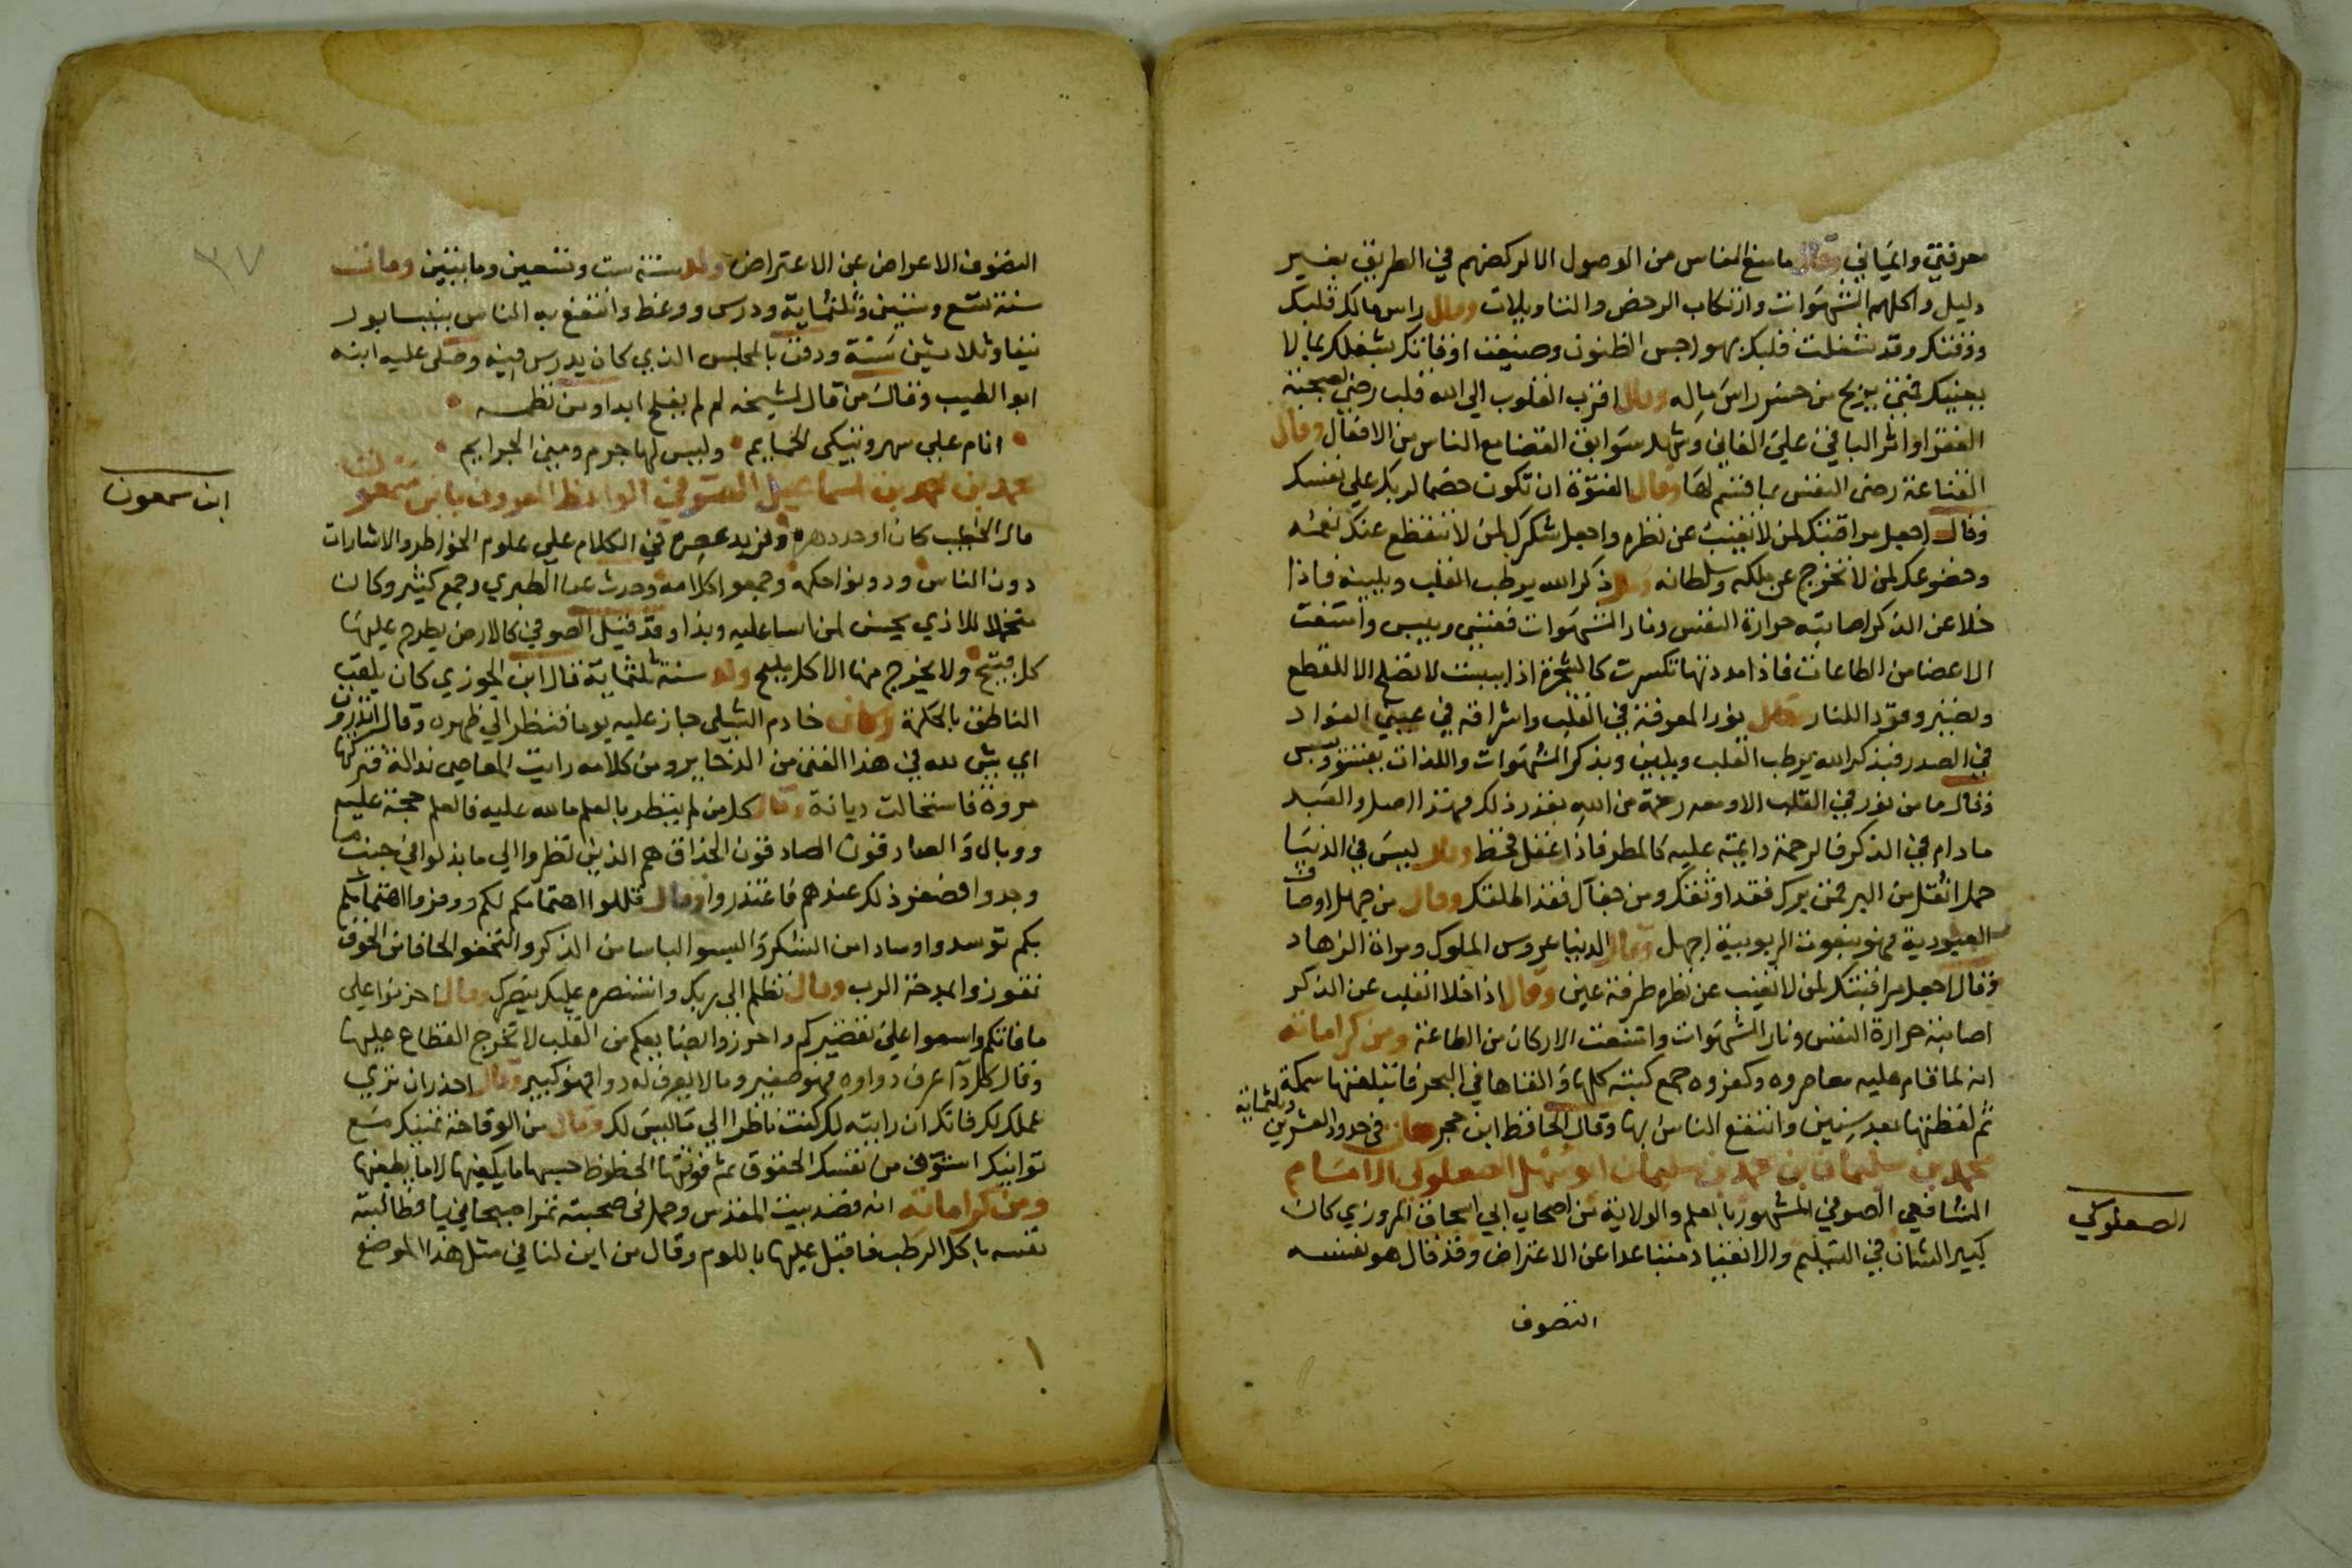 معرفتي وايماني وقال ما منع الناس من الوصول الا لركضهم في الطريق بغير
دليل واكلهم الشهوات وارتكاب الرخص والتاويلات وقال راس مالك قلبك
ووقتك وقد شغلت قلبك بهواجس الظنون وضيعت اوقاتك بشغلك بما لا
يعنيك فمتى يربح من خسر راس ماله وقال اقرب القلوب الى الله قلب رضي بصحبة
الفقراء واثر الباقي على الفاني وشهد سوابق القضا مع الناس من الافعال وقال
القناعة رضى النفس بما قسم لها وقال الفتوة ان تكون خصما لربك على نفسك
وقال اجعل مراقبتك لمن لا تغيب عن نظره واجعل شكرك لمن لا تنقطع عنك نعمه
وخضوعك لمن لا تخرج عن ملكه وسلطانه وقال ذكر الله يرطب القلب ويلينه فاذا
خلا عن الذكر اصابته حرارة النفس ونار الشهوات فقسي ويبس وامتنعت
الاعضا من الطاعات فاذا مددتها تكسرت كالشجرة اذا يبست لا تصلح الا للقطع
وتصير وقودا للنار وقال نور المعرفة في القلب واشراقه في عيني الفواد
في الصدر فبذكر الله يرطب القلب ويلين وبذكر الشهوات واللذات يقسو ويبس
وقال ما من نور في القلب الا ومعه رحمة من الله بقدر ذلك فهذا اصل والعبد
مادام في الذكر فالرحمة دايمة عليه كالمطر فاذا غفل قحط وقال ليس في الدنيا
حمل اثقل من البر فمن برك فقد اوثقك ومن جفاك فقد اطلقك وقال من جهل اوصاف
العبودية فهو بنعوت الربوبية اجهل وقال الدنيا عروس الملوك ومراة الزهاد
وقال اجعل مراقبتك لمن لا تغيب عن نظره طرفة عين وقال اذا خلا القلب عن الذكر
اصابته حرارة النفس ونار الشهوات وامتنعت الاركان من الطاعة ومن كراماته
انه لما قام عليه معاصروه وكفروه جمع كتبه كلها والقاها في البحر فابتلعتها سمكة
ثم لفظتها بعد سنين وانتفع الناس بها وقال الحافظ ابن حجر مات في حدود العشرين وثلثماية
محمد بن سليمان بن محمد بن سليمان ابو سهل الصعلوكي الامام
الشافعي الصوفي المشهور بالعلم والولاية من اصحاب ابي اسحاق المروزي كان
كبير الشان في التسليم والانقياد متباعدا عن الاعتراض وقد قال هو نفسه
التصوف
الصعلوكي
٣٧
التصوف الاعراض عن الاعتراض ولد سنة ست وتسعين ومايتين ومات
سنة تسع وستين وثلثماية ودرس ووعظ وانتفع به الناس بنيسابور
نيفا وثلاثين سنة ودفن بالمجلس الذي كان يدرس فيه وصلى عليه ابنه
ابو الطيب وقال من قال لشيخه لم لم يفلح ابدا ومن نظمه
انام على سهر وتبكي الحمايم وليس لها جرم ومني الجرايم
محمد بن احمد بن اسماعيل الصوفي الواعظ المعروف بابن سمعون
قال الخطيب كان اوحد دهره وفريد عصره في الكلام على علوم الخواطر والاشارات
دون الناس ودونوا حكمه وجمعوا كلامه وحدث عنه الطبري وجمع كثير وكان
متحملا للاذي يحسن لمن اسا عليه وبذا وقد قيل الصوفي كالارض يطرح عليها
كل قبيح ولا يخرج منها الا كل مليح ولد سنة ثلثماية قال ابن الجوزي كان يلقب
الناطق بالحكمة وكان خادم الشبلي جاز عليه يوما فنظر الى ظهره وقال اتدرون
اي شي لله في هذا الفتى من الذخاير ومن كلامه رايت المعاصي نذالة فتركتها
مروة فاستحالت ديانة وقال كل من لم ينظر بالعلم ما لله عليه فالعلم حجة عليه
ووبال وقال الصادقون الحذاق هم الذين نظروا الى ما بذلوا في جنب ما
وجدوا فصغر ذلك عندهم فاعتذروا وقال قللوا اهتمامكم لكم ووفروا اهتمامكم
بكم توسدوا وسادا من الشكر والبسوا لباسا من الذكر والتحفوا لحافا من الخوف
تفوزوا بمدحة الرب وقال تظلم الى ربك وانتصره عليك ينصرك وقال احزنوا على
ما فاتكم واسموا على تقصيركم واحرزوا بضايعكم من القلب لا تخرج القطاع عليها
وقال كل دا عرف دواوه فهو صغير وما لا يعرف له دوا فهو كبير وقال احذر ان تري
عملك لك فانك ان رايته لك كنت ناظرا الى ما ليس لك وقال من الوقاحة تمنيك مع
توانيك استوف من نفسك الحقوق ثم فوتها الحظوظ حسبها ما يكفيها لا ما يطغيها
ومن كراماته انه قصد بيت المقدس وحمل في صحبته تمرا صيحانيا فطالبته
نفسه باكل الرطب فاقبل عليها باللوم وقال من اين لنا في مثل هذا الموضع
ابن سمعون